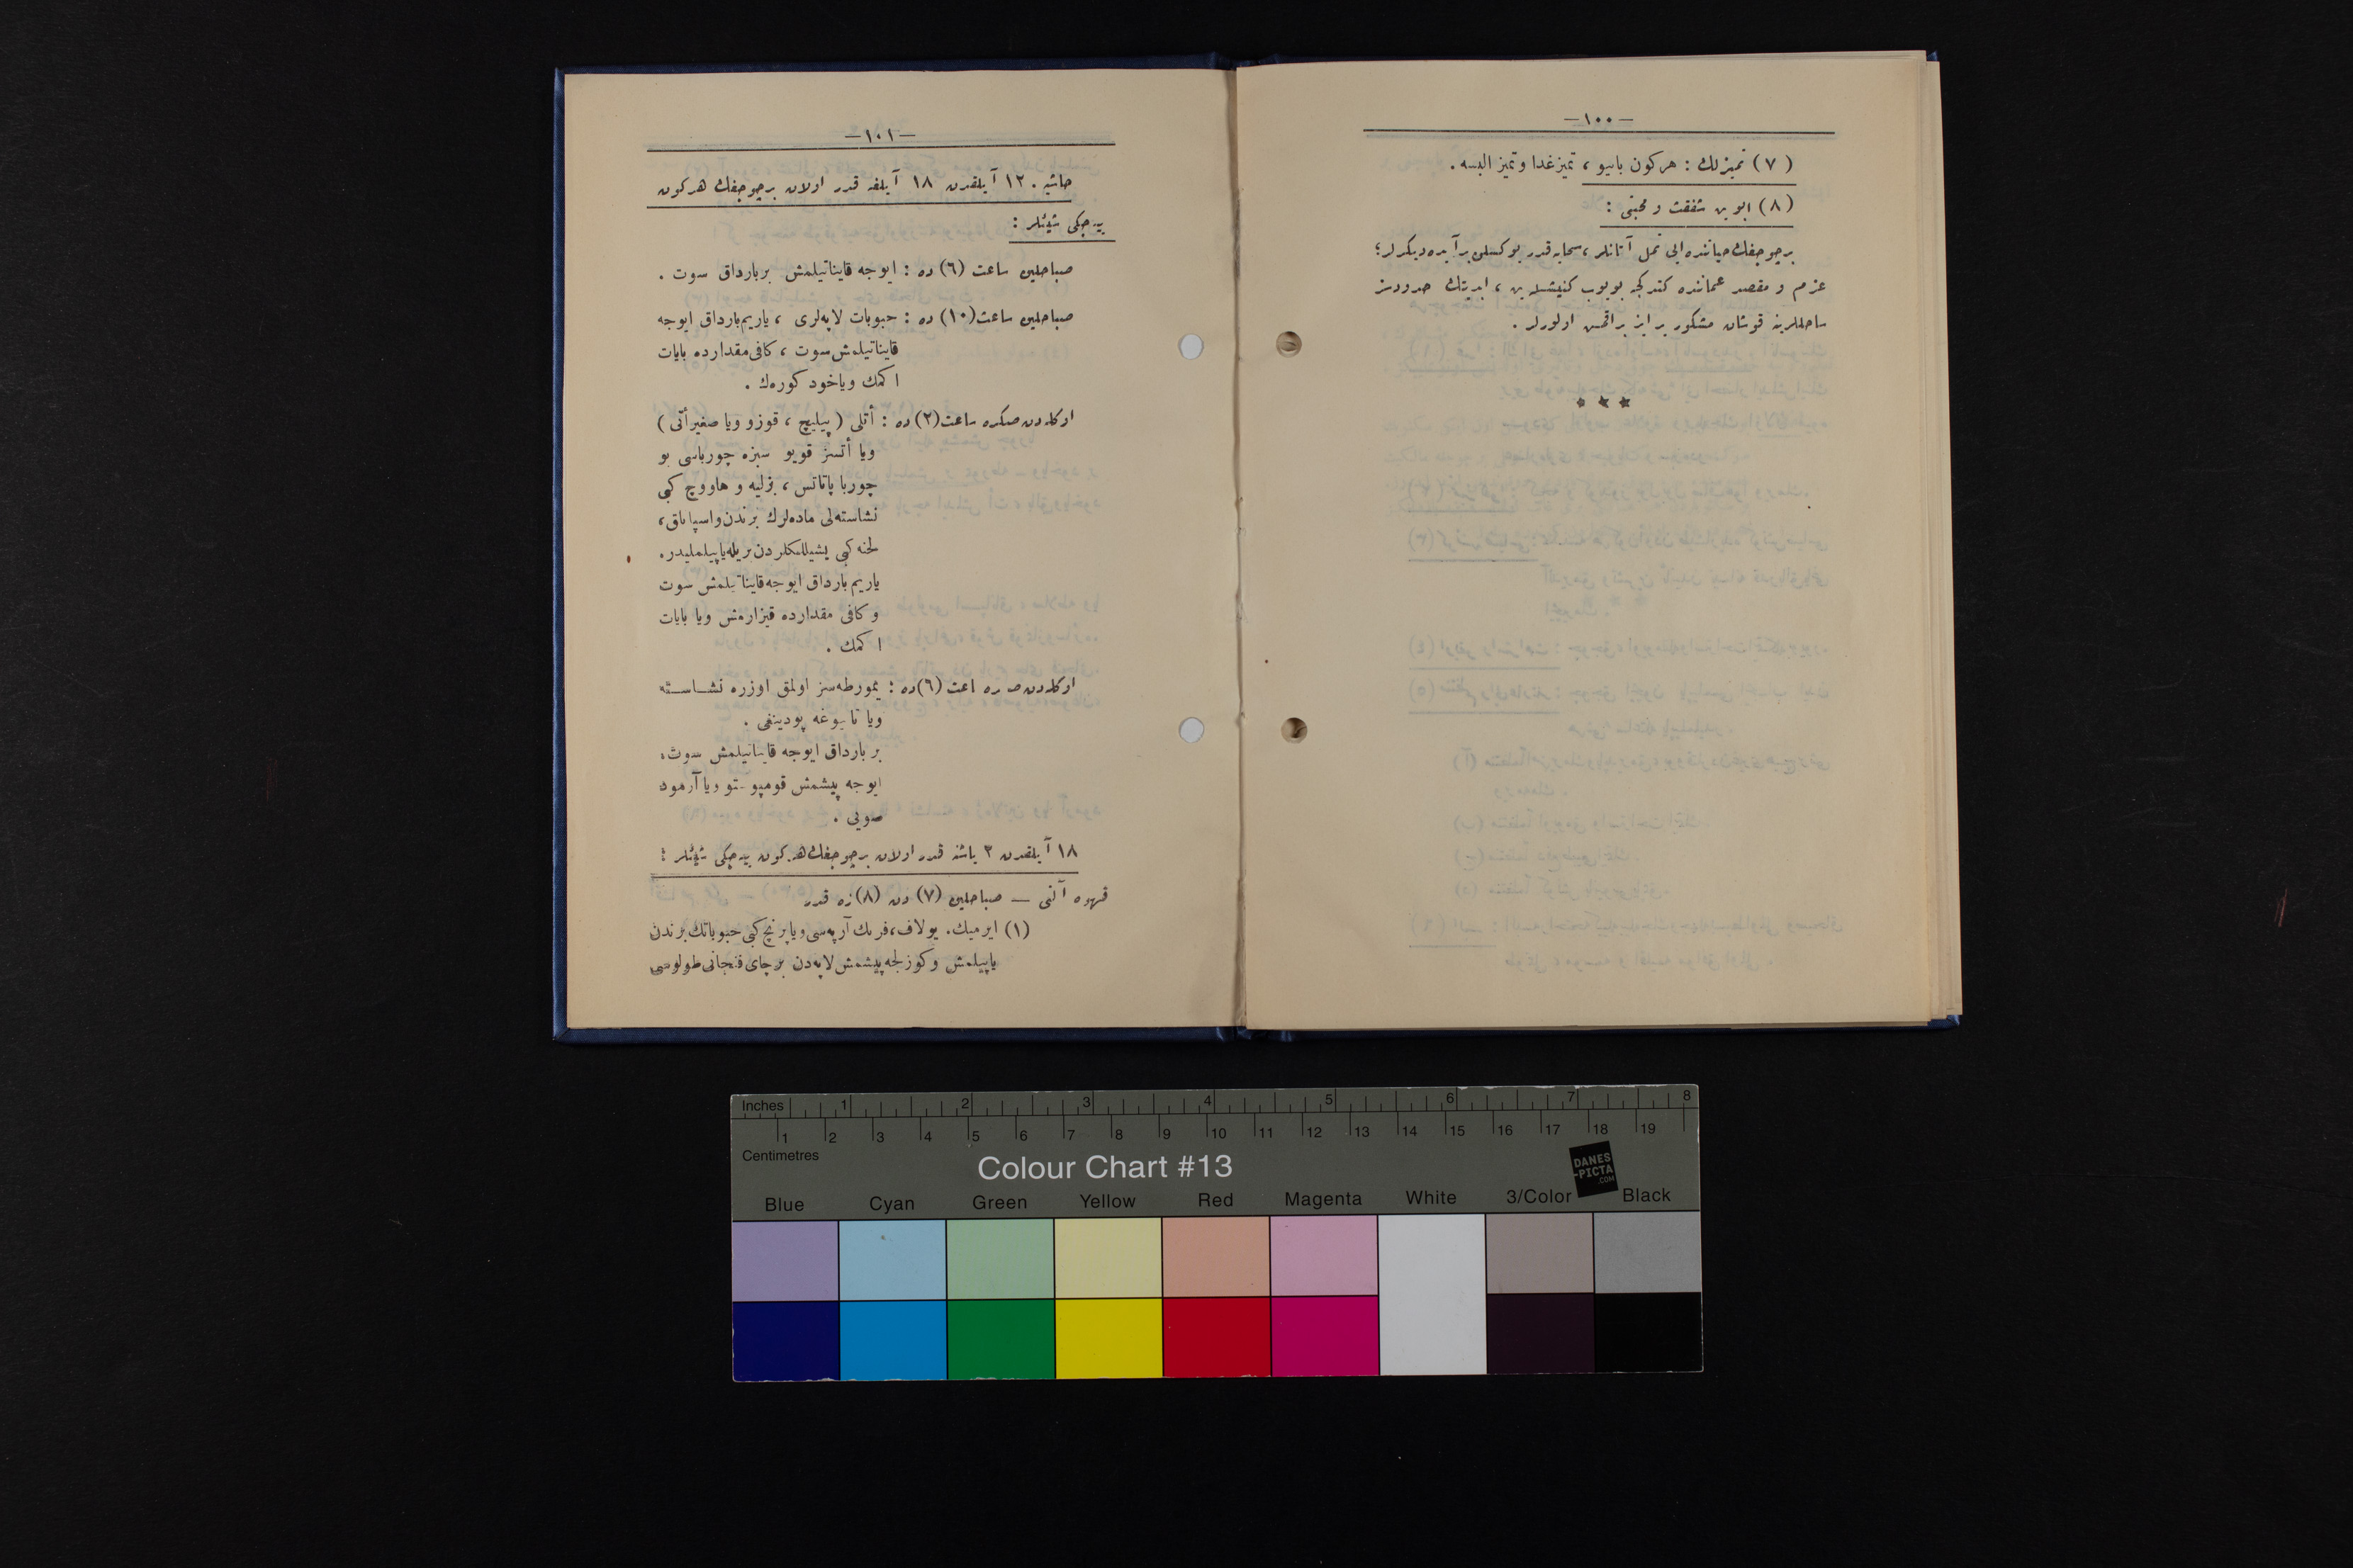 —١٠٠—
(٧) تميزلك : هركون بانيو ، تميزغدا وتميز البسه .
(٨) ابوين شفقت و محبتى :
برچوجغك حياتنده ايى تمل آتانلر ، سحابه قدر يوكسلن برآبده ديكرلر؛
عزم و مقصد عماننده كندكجه بويوب كنيشلەين ، ابديتك حدودسز
ساحللرينه قوشان مشكور بر ايز براقمس اولورلر .
* * *
—١٠١—
حاشيه . ١٢ آيلقدن ١٨ آيلغه قدر اولان برچوجغك هركون
يەجكى شيئلر :
صباحلين ساعت (٦) ده : ايوجه قايناتيلمش بربارداق سوت .
صباحلين ساعت (١٠) ده : حبوبات لاپەلرى ، ياريم بارداق ايوجه
قايناتيلمش سوت ، كافى مقدارده بايات
اكمك وياخود كورەك .
اوكلەدن صكره ساعت (٢) ده : أتلى (پيليچ ، قوزو ويا صغيرأتى)
ويا أتسز قويو سبزه چورباسى بو
چوربا پاتاتس ، بزليه و هاووچ كبى
نشاستەلى مادەلرك برندن واسپاناق ،
لخنه كبى يشيللكلردن بريله ياپيلمليدر.
ياريم بارداق ايوجه قايناتيلمش سوت
و كافى مقدارده قيزارمش ويا بايات
اكمك .
اوكلەدن ص ره اعت (٦) ده : يمورطەسز اولمق اوزره نشاسته
ويا تاپيوغه پودينغى .
بر بارداق ايوجه قايناتيلمش سوت،
ايوجه پيشمش قومپوستو ويا آرمود
صويى .
١٨ آيلقدن ٣ ياشنه قدر اولان برچوجغك هركون يەجكى شيئلر :
قهوه آلتى — صباحلين (٧) دن (٨) زه قدر
(١) ايرميك. يولاف، فرنك آرپەسى ويا پرنچ كبى حبوباتك برندن
ياپيلمش وكوزلجه پيشمش لاپەدن برچاى فنجانى طولوسى
Inches 1 2 3 4 5 6 7 8
1 2 3 4 5 6 7 8 9 10 11 12 13 14 15 16 17 18 19
Centimetres
Colour Chart #13
DANES
-PICTA
.COM
Blue Cyan Green Yellow Red Magenta White 3/Color Black